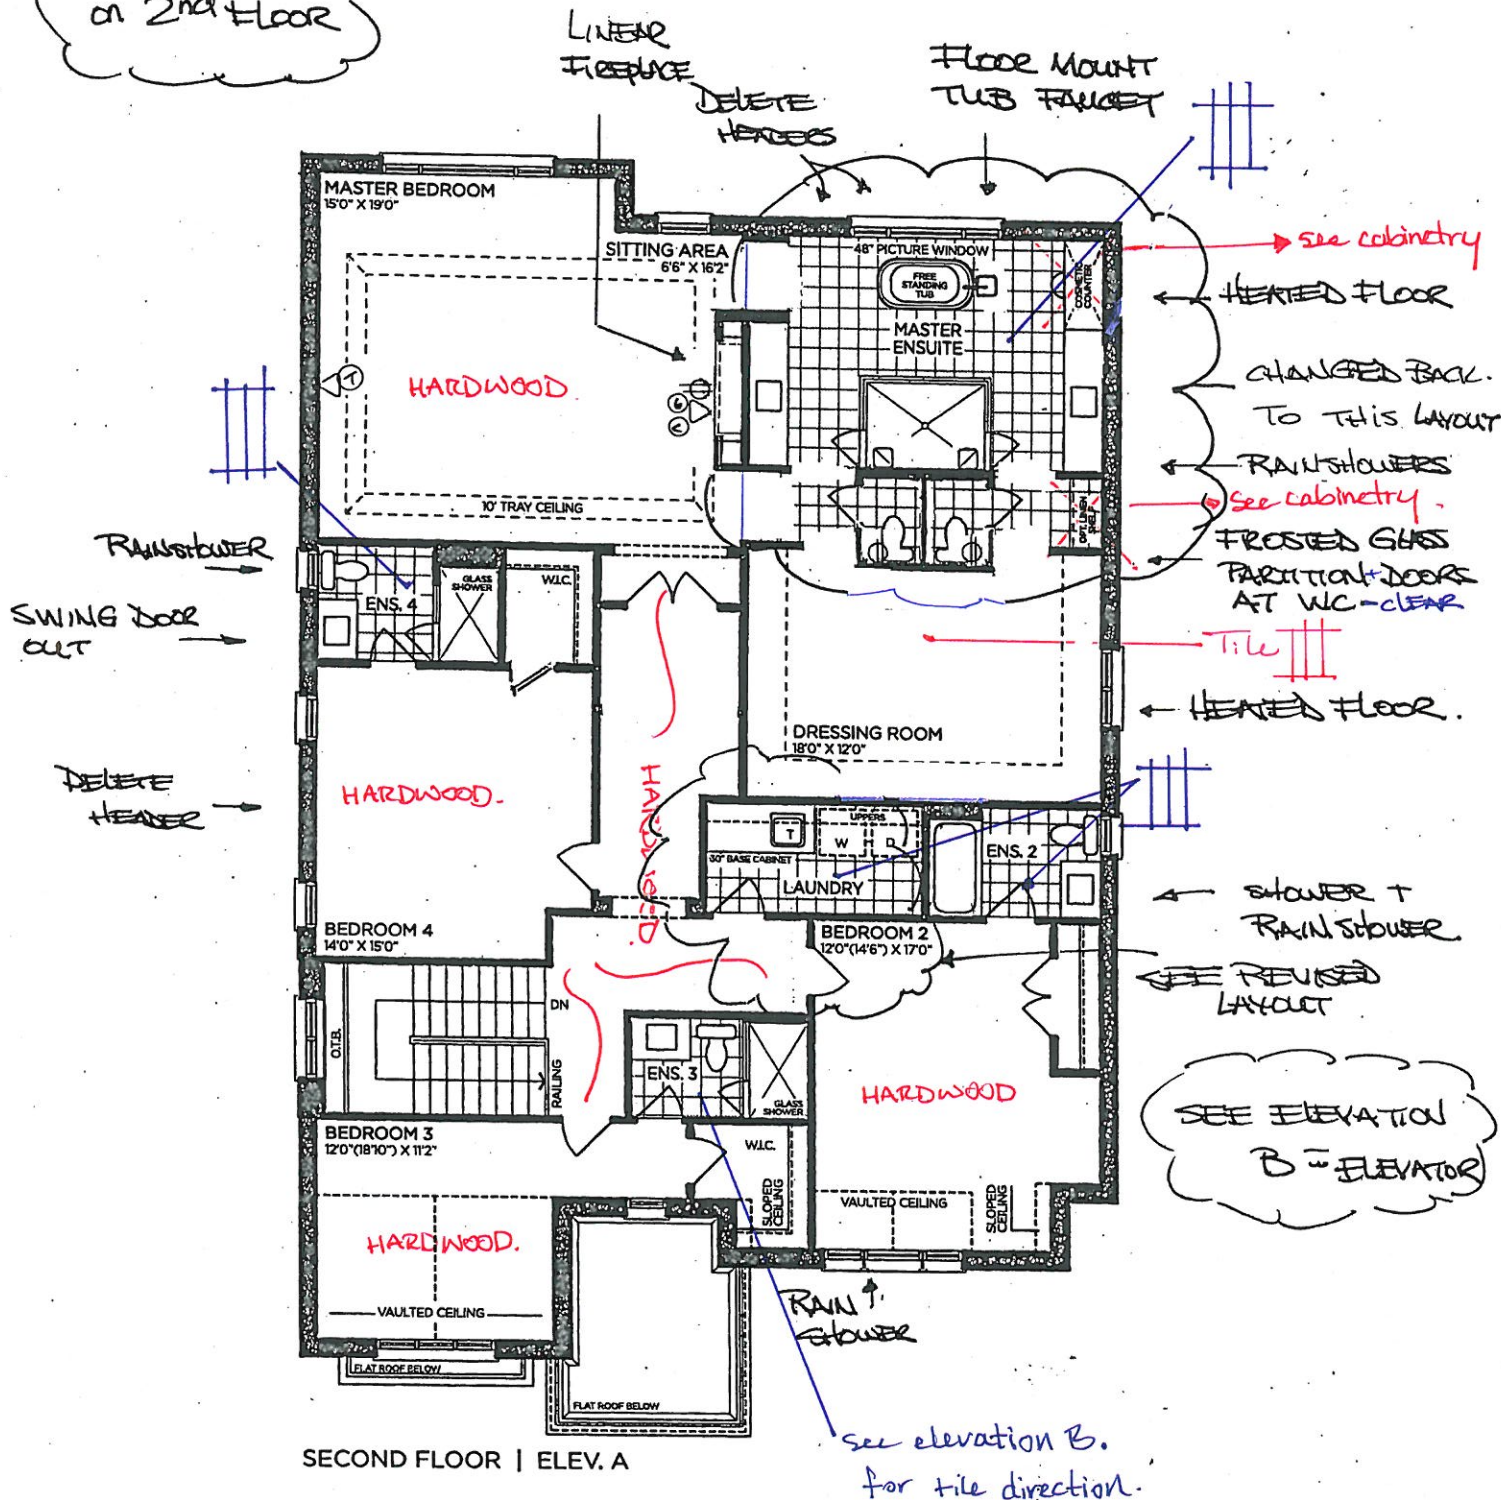 on 2nd FLOOR
LINEAR
FIREPLACE
DELETE
HEADERS
FLOOR MOUNT
TUB FAUCET
MASTER BEDROOM
15'0" X 19'0"
SITTING AREA
6'6" X 16'2"
48" PICTURE WINDOW
FREE
STANDING
TUB
COSMETIC
COUNTER
MASTER
ENSUITE
see cabinetry
HEATED FLOOR
CHANGED BACK.
TO THIS LAYOUT
RAINSHOWERS
see cabinetry.
FROSTED GLASS
PARTITION + DOORS
AT WC - CLEAR
HARDWOOD
T
G
10' TRAY CEILING
OPT. LINEN
SHELF
RAINSHOWER
SWING DOOR
OUT
ENS. 4
GLASS
SHOWER
W.I.C.
Tile
HEATED FLOOR.
DRESSING ROOM
18'0" X 12'0"
DELETE
HEADER
HARDWOOD.
HARDWOOD.
UPPERS
T
W
D
30" BASE CABINET
LAUNDRY
ENS. 2
SHOWER +
RAINSHOWER
SEE REVISED
LAYOUT
BEDROOM 4
14'0" X 15'0"
BEDROOM 2
12'0"(14'6") X 17'0"
O.T.B.
DN
RAILING
ENS. 3
GLASS
SHOWER
HARDWOOD
SEE ELEVATION
B = ELEVATOR
BEDROOM 3
12'0"(18'10") X 11'2"
W.I.C.
SLOPED
CEILING
VAULTED CEILING
SLOPED
CEILING
HARDWOOD.
VAULTED CEILING
RAIN
SHOWER
FLAT ROOF BELOW
FLAT ROOF BELOW
SECOND FLOOR | ELEV. A
see elevation B.
for tile direction.